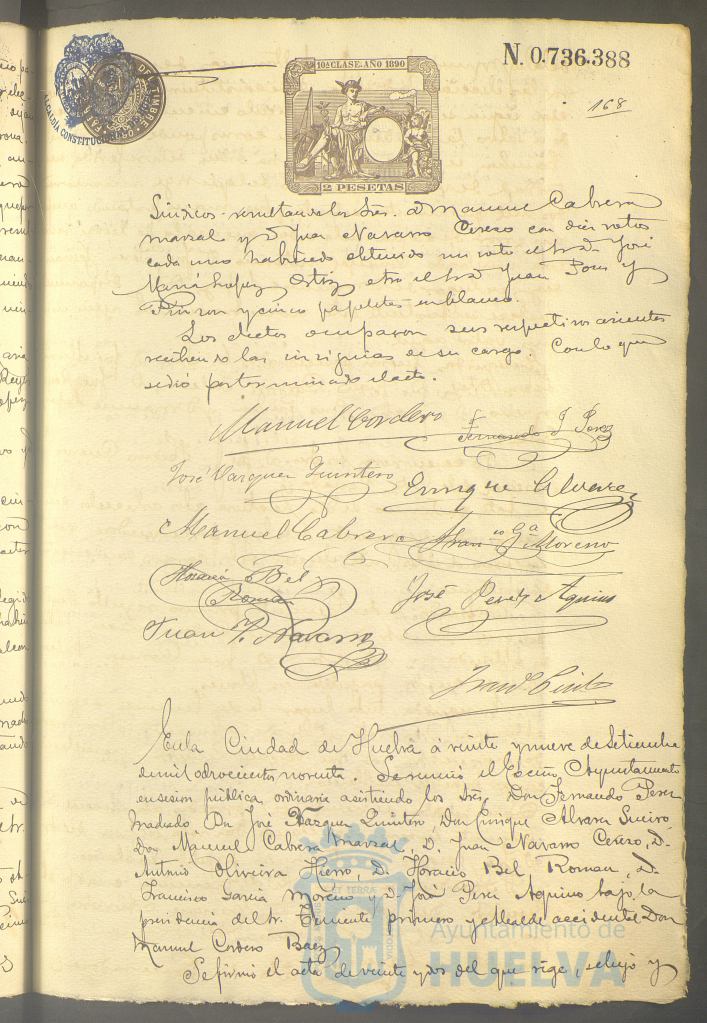 N. 0.736.388
10ª CLASE. AÑO 1890
168
ALCALDÍA CONSTITUCIONAL
DEL TIMBRE
2 PESETAS
Síndicos resultando los Sres. D Manuel Cabrera
Marzal y D Juan Navarro Cerezo con diez votos
cada uno habiendo obtenido un voto el Sr D José
María Lopez Ortiz otro el Sr D Juan Pons y
Pinzon y cinco papeletas en blanco.
Los electos ocuparon sus respectivos asientos
recibiendo las insignias de su cargo. Con lo que
se dió por terminado el acto.
Manuel Cordero
Fernando J Perez
José Vazquez Quintero
Enrique Alvarez
Manuel Cabrera
Franco Ga Moreno
Horacio Bel
Roman
José Perez Aquino
Juan Navarro
En la Ciudad de Huelva á veinte y nueve de Setiembre
de mil ochocientos noventa. Se reunió el Excmo Ayuntamiento
en sesion pública ordinaria asistiendo los Sres. Don Fernando Perez
Machado Dn José Vazquez Quintero, Don Enrique Alvarez Sueiro
Don Manuel Cabrera Marzal, D. Juan Navarro Cerezo, D.
Antonio Oliveira Hierro, D. Horacio Bel Roman, D.
Francisco Garcia Moreno y D José Perez Aquino bajo la
presidencia del Sr. Teniente primero y Alcalde accidental Don
Manuel Cordero Baez
Se firmó el acta de veinte y dos del que rige, se leyó y
Ayuntamiento de
HUELVA